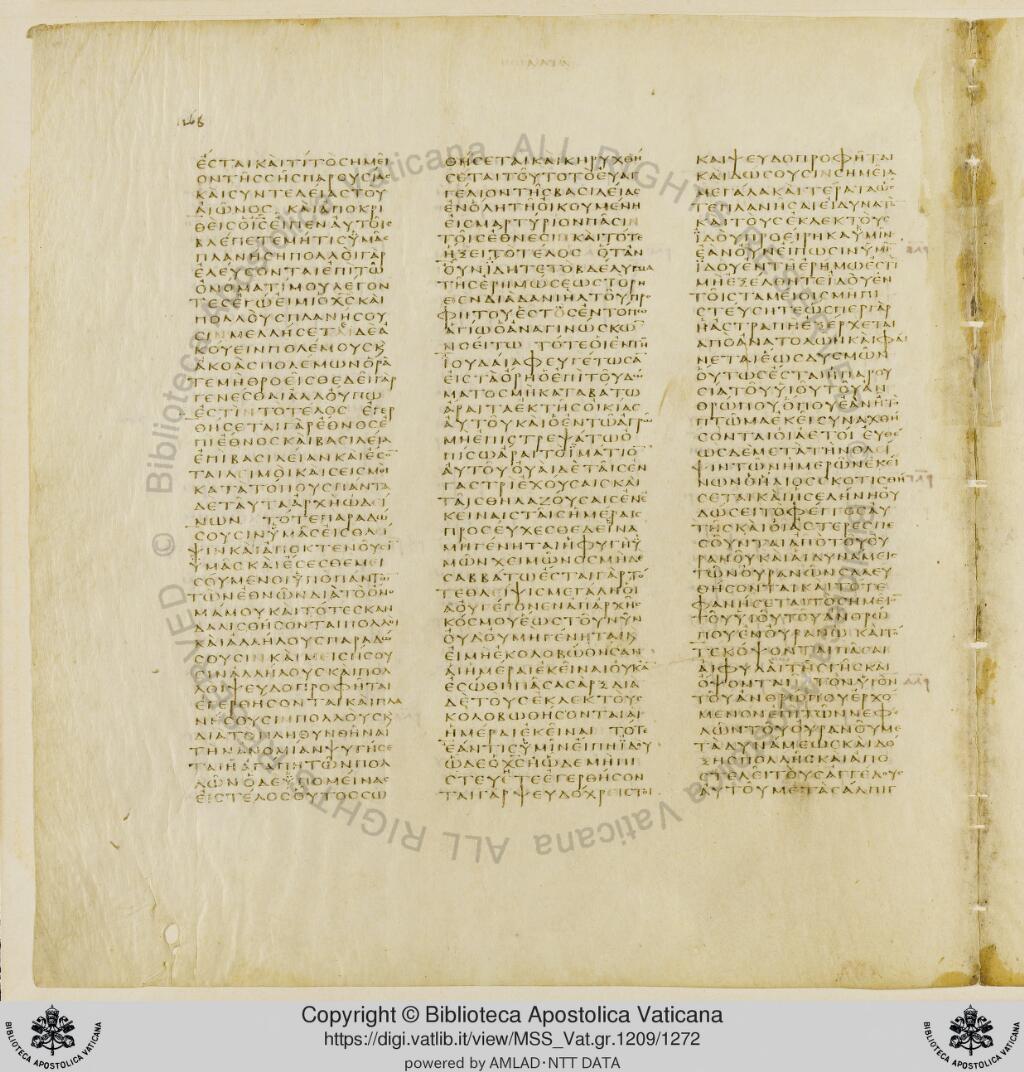 1268
ΕΣΤΑΙΚΑΙΤΙΤΟΣΗΜΕΙ
ΟΝΤΗΣΣΗΣΠΑΡΟΥΣΙΑΣ
ΚΑΙΣΥΝΤΕΛΕΙΑΣΤΟΥ
ΑΙΩΝΟΣ ΚΑΙΑΠΟΚΡΙ
ΘΕΙΣΟΙΣΕΙΠΕΝΑΥΤΟΙΣ
ΒΛΕΠΕΤΕΜΗΤΙΣΥΜΑΣ
ΠΛΑΝΗΣΗΠΟΛΛΟΙΓΑΡ
ΕΛΕΥΣΟΝΤΑΙΕΠΙΤΩ
ΟΝΟΜΑΤΙΜΟΥΛΕΓΟΝ
ΤΕΣΕΓΩΕΙΜΙΟΧΣΚΑΙ
ΠΟΛΛΟΥΣΠΛΑΝΗΣΟΥ
ΣΙΝΜΕΛΛΗΣΕΤΑΙΔΕΑ
ΚΟΥΕΙΝΠΟΛΕΜΟΥΣΚ
ΑΚΟΑΣΠΟΛΕΜΩΝΟΡΑ
ΤΕΜΗΘΡΟΕΙΣΘΕΔΕΙΓΑΡ
ΓΕΝΕΣΘΑΙΑΛΛΟΥΠΩ
ΕΣΤΙΝΤΟΤΕΛΟΣ ΕΓΕΡ
ΘΗΣΕΤΑΙΓΑΡΕΘΝΟΣΕ
ΠΙΕΘΝΟΣΚΑΙΒΑΣΙΛΕΙΑ
ΕΠΙΒΑΣΙΛΕΙΑΝΚΑΙΕΣ
ΤΑΙΛΕΙΜΟΙΚΑΙΣΕΙΣΜΟΙ
ΚΑΤΑΤΟΠΟΥΣΠΑΝΤΑ
ΔΕΤΑΥΤΑΑΡΧΗΩΔΕΙ
ΝΩΝ ΤΟΤΕΠΑΡΑΔΩ
ΣΟΥΣΙΝΥΜΑΣΕΙΣΘΛΕΙ
ΨΙΝΚΑΙΑΠΟΚΤΕΝΟΥΣΙ
ΥΜΑΣΚΑΙΕΣΕΣΘΕΜΕΙ
ΣΟΥΜΕΝΟΙΥΠΟΠΑΝΤΩ
ΤΩΝΕΘΝΩΝΔΙΑΤΟΟΝΟ
ΜΑΜΟΥΚΑΙΤΟΤΕΣΚΑΝ
ΔΑΛΙΣΘΗΣΟΝΤΑΙΠΟΛΛΟΙ
ΚΑΙΑΛΛΗΛΟΥΣΠΑΡΑΔΩ
ΣΟΥΣΙΝΚΑΙΜΕΙΣΗΣΟΥ
ΣΙΝΑΛΛΗΛΟΥΣΚΑΙΠΟΛ
ΛΟΙΨΕΥΔΟΠΡΟΦΗΤΑΙ
ΕΓΕΡΘΗΣΟΝΤΑΙΚΑΙΠΛΑ
ΝΗΣΟΥΣΙΝΠΟΛΛΟΥΣΚ
ΔΙΑΤΟΠΛΗΘΥΝΘΗΝΑΙ
ΤΗΝΑΝΟΜΙΑΝΨΥΓΗΣΕ
ΤΑΙΗΑΓΑΠΗΤΩΝΠΟΛ
ΛΩΝΟΔΕΥΠΟΜΕΙΝΑΣ
ΕΙΣΤΕΛΟΣΟΥΤΟΣΣΩ
ΘΗΣΕΤΑΙΚΑΙΚΗΡΥΧΘΗ
ΣΕΤΑΙΤΟΥΤΟΤΟΕΥΑΓ
ΓΕΛΙΟΝΤΗΣΒΑΣΙΛΕΙΑΣ
ΕΝΟΛΗΤΗΟΙΚΟΥΜΕΝΗ
ΕΙΣΜΑΡΤΥΡΙΟΝΠΑΣΙΝ
ΤΟΙΣΕΘΝΕΣΙΝΚΑΙΤΟΤΕ
ΗΞΕΙΤΟΤΕΛΟΣ ΟΤΑΝ
ΟΥΝΙΔΗΤΕΤΟΒΔΕΛΥΓΜΑ
ΤΗΣΕΡΗΜΩΣΕΩΣΤΟΡΗ
ΘΕΝΔΙΑΔΑΝΙΗΛΤΟΥΠΡΟ
ΦΗΤΟΥΕΣΤΟΣΕΝΤΟΠΩ
ΑΓΙΩΟΑΝΑΓΙΝΩΣΚΩ
ΝΟΕΙΤΩ ΤΟΤΕΟΙΕΝΤΗ
ΙΟΥΔΑΙΑΦΕΥΓΕΤΩΣΑ
ΕΙΣΤΑΟΡΗΟΕΠΙΤΟΥΔΩ
ΜΑΤΟΣΜΗΚΑΤΑΒΑΤΩ
ΑΡΑΙΤΑΕΚΤΗΣΟΙΚΙΑΣ
ΑΥΤΟΥΚΑΙΟΕΝΤΩΑΓΡΩ
ΜΗΕΠΙΣΤΡΕΨΑΤΩΟ
ΠΙΣΩΑΡΑΙΤΟΙΜΑΤΙΟ
ΑΥΤΟΥΟΥΑΙΔΕΤΑΙΣΕΝ
ΓΑΣΤΡΙΕΧΟΥΣΑΙΣΚΑΙ
ΤΑΙΣΘΗΛΑΖΟΥΣΑΙΣΕΝΕ
ΚΕΙΝΑΙΣΤΑΙΣΗΜΕΡΑΙΣ
ΠΡΟΣΕΥΧΕΣΘΕΔΕΙΝΑ
ΜΗΓΕΝΗΤΑΙΗΦΥΓΗΥ
ΜΩΝΧΕΙΜΩΝΟΣΜΗΔΕ
ΣΑΒΒΑΤΩΕΣΤΑΙΓΑΡΤΟ
ΤΕΘΛΕΙΨΙΣΜΕΓΑΛΗΟΙ
ΑΟΥΓΕΓΟΝΕΝΑΠΑΡΧΗΣ
ΚΟΣΜΟΥΕΩΣΤΟΥΝΥΝ
ΟΥΔΟΥΜΗΓΕΝΗΤΑΙΚ
ΕΙΜΗΕΚΟΛΟΒΩΘΗΣΑΝ
ΑΙΗΜΕΡΑΙΕΚΕΙΝΑΙΟΥΚΑ
ΕΣΩΘΗΠΑΣΑΣΑΡΞΔΙΑ
ΔΕΤΟΥΣΕΚΛΕΚΤΟΥΣ
ΚΟΛΟΒΩΘΗΣΟΝΤΑΙΑΙ
ΗΜΕΡΑΙΕΚΕΙΝΑΙ ΤΟΤΕ
ΕΑΝΤΙΣΥΜΙΝΕΙΠΗΙΔΟΥ
ΩΔΕΟΧΣΗΩΔΕΜΗΠΙ
ΣΤΕΥΕΤΕΕΓΕΡΘΗΣΟΝ
ΤΑΙΓΑΡΨΕΥΔΟΧΡΕΙΣΤΟΙ
ΚΑΙΨΕΥΔΟΠΡΟΦΗΤΑΙ
ΚΑΙΔΩΣΟΥΣΙΝΣΗΜΕΙΑ
ΜΕΓΑΛΑΚΑΙΤΕΡΑΤΑΩΣ
ΤΕΠΛΑΝΗΣΑΙΕΙΔΥΝΑΤΟ
ΚΑΙΤΟΥΣΕΚΛΕΚΤΟΥΣ
ΙΔΟΥΠΡΟΕΙΡΗΚΑΥΜΙΝ
ΕΑΝΟΥΝΕΙΠΩΣΙΝΥΜΙ
ΙΔΟΥΕΝΤΗΕΡΗΜΩΕΣΤΙ
ΜΗΕΞΕΛΘΗΤΕΙΔΟΥΕΝ
ΤΟΙΣΤΑΜΕΙΟΙΣΜΗΠΙ
ΣΤΕΥΣΗΤΕΩΣΠΕΡΓΑΡ
ΗΑΣΤΡΑΠΗΕΞΕΡΧΕΤΑΙ
ΑΠΟΑΝΑΤΟΛΩΝΚΑΙΦΑΙ
ΝΕΤΑΙΕΩΣΔΥΣΜΩΝ
ΟΥΤΩΣΕΣΤΑΙΗΠΑΡΟΥ
ΣΙΑΤΟΥΥΙΟΥΤΟΥΑΝ
ΘΡΩΠΟΥΟΠΟΥΕΑΝΗΤΟ
ΠΤΩΜΑΕΚΕΙΣΥΝΑΧΘΗ
ΣΟΝΤΑΙΟΙΑΕΤΟΙ ΕΥΘΕ
ΩΣΔΕΜΕΤΑΤΗΝΘΛΕΙ
ΨΙΝΤΩΝΗΜΕΡΩΝΕΚΕΙ
ΝΩΝΟΗΛΙΟΣΣΚΟΤΙΣΘΗ
ΣΕΤΑΙΚΑΙΗΣΕΛΗΝΗΟΥ
ΔΩΣΕΙΤΟΦΕΓΓΟΣΑΥ
ΤΗΣΚΑΙΟΙΑΣΤΕΡΕΣΠΕ
ΣΟΥΝΤΑΙΑΠΟΤΟΥΟΥ
ΡΑΝΟΥΚΑΙΑΙΔΥΝΑΜΕΙΣ
ΤΩΝΟΥΡΑΝΩΝΣΑΛΕΥ
ΘΗΣΟΝΤΑΙΚΑΙΤΟΤΕ
ΦΑΝΗΣΕΤΑΙΤΟΣΗΜΕΙ
ΤΟΥΥΙΟΥΤΟΥΑΝΘΡΩ
ΠΟΥΕΝΟΥΡΑΝΩΚΑΙΤΟ
ΤΕΚΟΨΟΝΤΑΙΠΑΣΑΙ
ΑΙΦΥΛΑΙΤΗΣΓΗΣΚΑΙ
ΟΨΟΝΤΑΙ ΤΟΝΥΙΟΝ
ΤΟΥΑΝΘΡΩΠΟΥΕΡΧΟ
ΜΕΝΟΝΕΠΙΤΩΝΝΕΦΕ
ΛΩΝΤΟΥΟΥΡΑΝΟΥΜΕ
ΤΑΔΥΝΑΜΕΩΣΚΑΙΔΟ
ΞΗΣΠΟΛΛΗΣΚΑΙΑΠΟ
ΣΤΕΛΕΙΤΟΥΣΑΓΓΕΛΟΥΣ
ΑΥΤΟΥΜΕΤΑΣΑΛΠΙΓ
Copyright © Biblioteca Apostolica Vaticana
https://digi.vatlib.it/view/MSS_Vat.gr.1209/1272
powered by AMLAD·NTT DATA